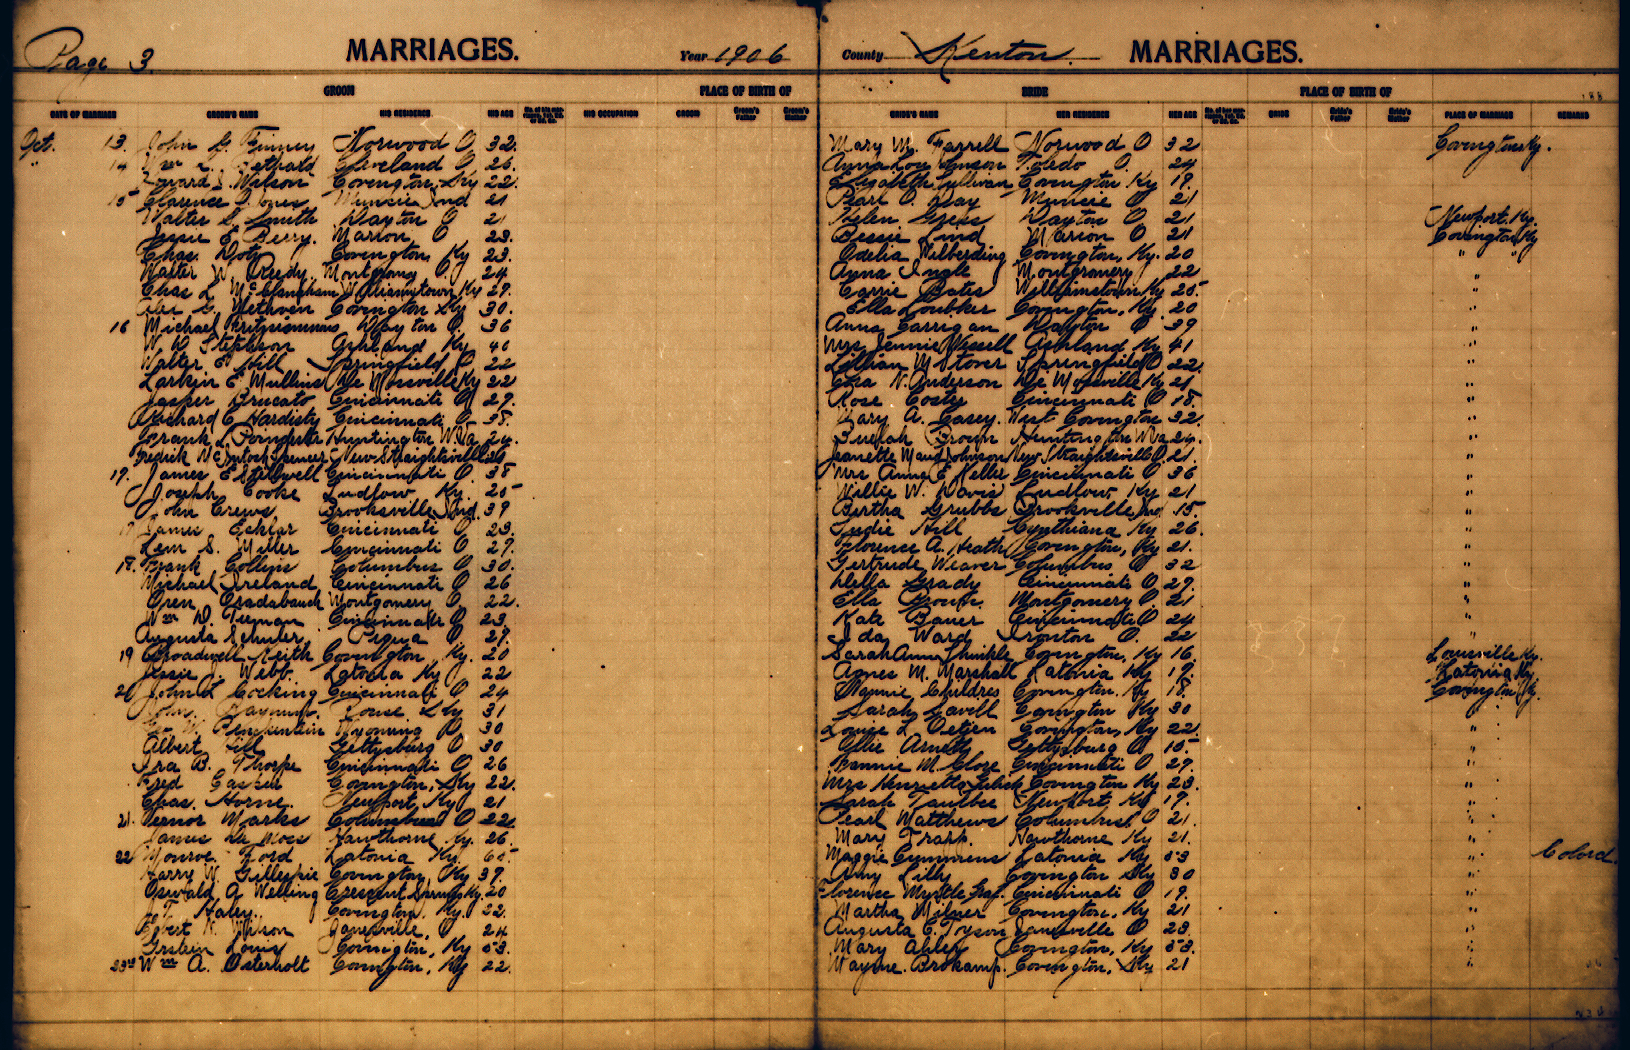 Page 3. MARRIAGES. Year 1906 County Kenton. MARRIAGES.
GROOM PLACE OF BIRTH OF BRIDE PLACE OF BIRTH OF
DATE OF MARRIAGE GROOM'S NAME HIS RESIDENCE HIS AGE HIS OCCUPATION GROOM Groom's Father Groom's Mother BRIDE'S NAME HER RESIDENCE HER AGE BRIDE Bride's Father Bride's Mother PLACE OF MARRIAGE REMARKS
Oct. 13. John G. Finney Norwood O 32. Mary M. Farrell Norwood O 32 Covington Ky.
" 14 Wm L. Cleveland O 26. Anna Lou Johnson Toledo O. 24
Edward J. Wilson Covington, Ky 22. Elizabeth Sullivan Covington Ky 19.
15 Clarence O. Jones Muncie Ind 21 Pearl O. Day Muncie O 21
Walter S. Smith Dayton O 21 Helen Dayton O 21 Newport. Ky.
Jessie E. Berry. Marion, O 23. Bessie Lind Marion O 21 Covington Ky
Chas. Doty Covington, Ky 23. Odelia Wilberding Covington, Ky. 20 " "
Walter W. Reedy. Montgomery O. 24. Anna Ingle Montgomery 22 "
Chas L. McClanahan Williamstown, Ky 27. Carrie Bates Williamstown Ky 25. "
Alex G. Methven Covington Ky 30. Ella Loebker Covington, Ky. 20 "
16 Michael Fitzsimmons Dayton O. 36 Anna Carrigan Dayton O 39 "
W. D. Stephson Ashland Ky 40 Mrs Jennie Vessell Ashland Ky 41 "
Walter E. Hill Springfield, O 22 Lillian M Stover Springfield O 22. "
Larkin E. Mullins De Mossville Ky 22 Eva N. Anderson De Mossville Ky 21 "
Jasper Brucato Cincinnati O 27. Rose Coste Cincinnati O 18. "
Richard C. Hardisty Cincinnati O. 35. Mary A. Casey. West Covington 32. "
Frank L. Huntington W Va 24. Buelah Brown Huntington W Va 24. "
Fredrik New Straightsville Jeanette Maud Johnson New Straightsville O. 21. "
17. James E Stillwell Cincinnati O. 38 Mrs Anna E. Keller Cincinnati O 36 "
Joseph Cooke Ludlow, Ky. 25 Willie W. Davis Ludlow, Ky 21 "
John Crews. Brooksville, Ind. 39 Bertha Grubbs Brookville, Ind 15. "
17 James Ecklar Cincinnati O 23. Sudie Hill Cynthiana Ky 26. "
Lem S. Miller Cincinnati O 27. Florence A. Heath Covington, Ky 21. "
18. Frank Collins Columbus O 30. Gertrude Weaver Columbus O 32 "
Michael Ireland Cincinnati O 26 Della Grady Cincinnati O 27. "
Oren Montgomery O. 22. Ella Montgomery O. 21 "
Wm D. Tierman Cincinnati O 23. Kate Bauer Cincinnati O 24 "
Augusta Schuler Piqua O 27. Ida Ward Ironton O. 22 "
19 Broadwell Keith Covington, Ky. 20 Sarah Ann Shinkle Covington, Ky 16. Louisville Ky.
Jessie J. Webb Latonia Ky 22 Agnes M. Marshall Latonia Ky 19. Latonia Ky.
20 John L Cocking Cincinnati O 24 Mannie Childres Covington. Ky 18. Covington Ky.
John Rouse Ky 31 Sarah Savill Covington Ky 30 "
Wyoming O 30 Louise L. Oetjen Covington, Ky 22. "
Albert Hill Gettysburg O 30 Ollie Arnett Gettysburg O 18. "
Ira B. Thorpe Cincinnati O 26 Fannie M. Close Cincinnati O 29. "
Fred Casper Covington, Ky 22. Mrs Henrietta Covington Ky 23. "
Chas. Horne. Newport, Ky 21 Sarah Taulbee Newport, Ky 19. "
21. Vernor Marks Columbus O 22. Pearl Matthews Columbus O 21. "
James De Moss Hawthorne Ky. 26. Mary Trapp. Hawthorne Ky 21. "
22 Monroe Ford Latonia Ky. 65. Maggie Cummins Latonia Ky 53 " Colord.
Harry W. Gillespie Covington, Ky 39. Amy Lilly Covington Ky 30 "
Oswald A Welling Crescent Springs Ky. 20 Florence Myrtle Graf. Cincinnati O 19. "
J. T. Haley. Covington, Ky. 22. Martha Milner Covington, Ky 21 "
Robert N. Wilson Janesville, O 24 Augusta C. Tyson Janesville O 23. "
Louis Covington, Ky 53. Mary Abler Covington, Ky 53. "
23rd Wm A. Osterholt Covington, Ky 22. Mayme. Brokamp. Covington, Ky 21 "